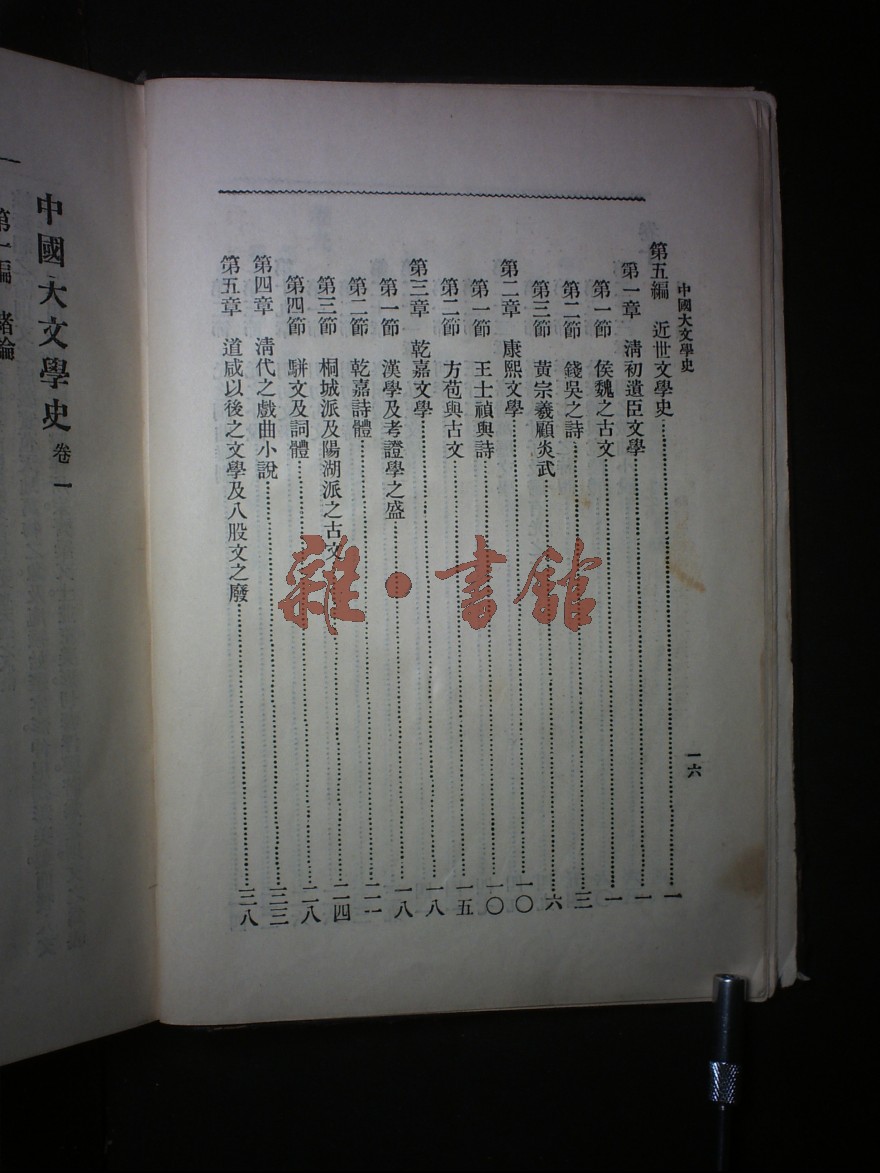 中國大文學史
一六
第五編　近世文學史…………一
第一章　淸初遺臣文學…………一
第一節　侯魏之古文…………一
第二節　錢吳之詩…………三
第三節　黃宗羲顧炎武…………六
第二章　康熙文學…………一〇
第一節　王士禎與詩…………一〇
第二節　方苞與古文…………一五
第三章　乾嘉文學…………一八
第一節　漢學及考證學之盛…………一八
第二節　乾嘉詩體…………二一
第三節　桐城派及陽湖派之古文…………二四
第四節　駢文及詞體…………二八
第四章　淸代之戲曲小說…………三三
第五章　道咸以後之文學及八股文之廢…………三八
雜·書館
中國大文學史　卷一
第一編　緒論
一